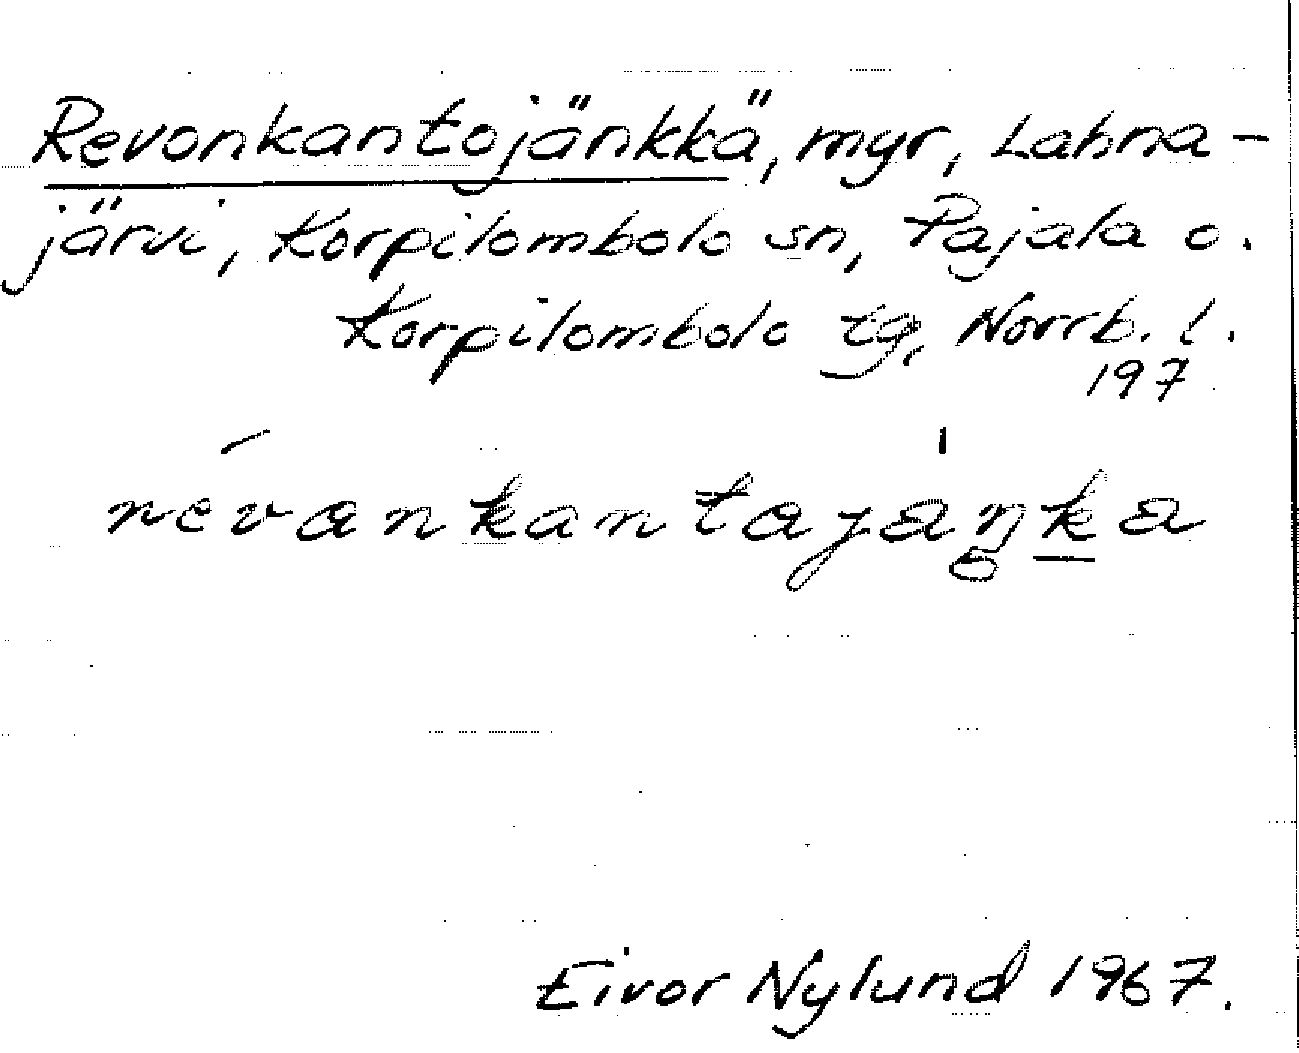 Revonkantojänkkä, myr, Lahna-
järvi, Korpilombolo sn, Pajala o.
Korpilombolo tg, Norrb. l.
197
révankantajaŋka
Eivor Nylund 1967.